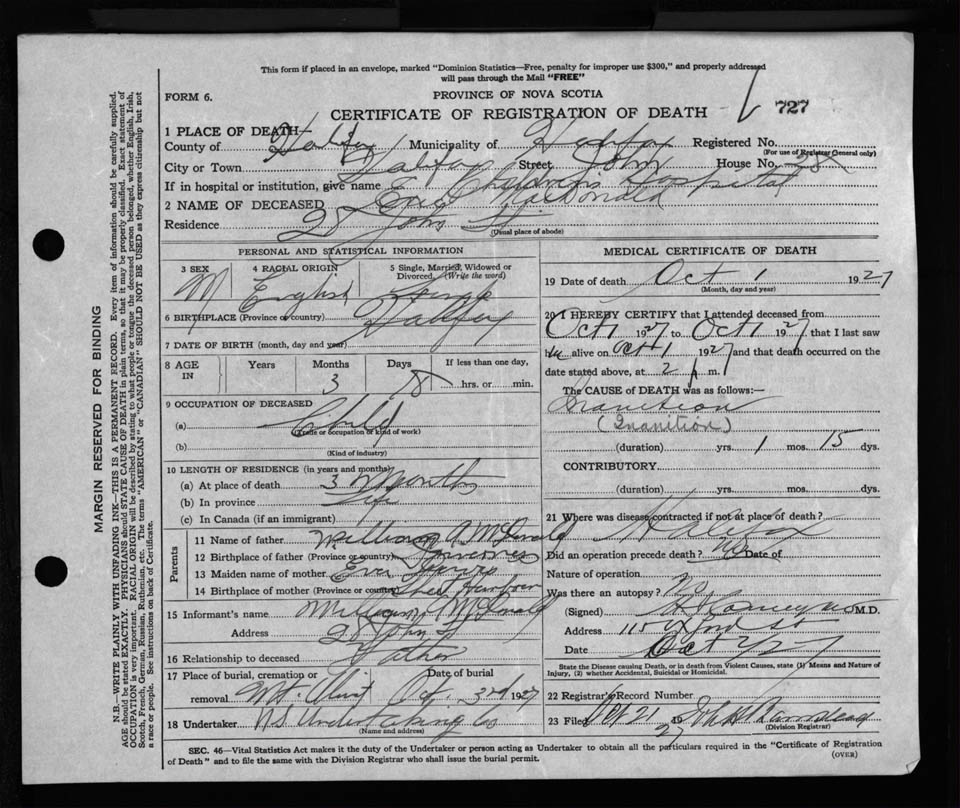 This form if placed in an envelope, marked "Dominion Statistics—Free, penalty for improper use $300," and properly addressed
will pass through the Mail "FREE"
FORM 6.
PROVINCE OF NOVA SCOTIA
CERTIFICATE OF REGISTRATION OF DEATH
727
1 PLACE OF DEATH—
County of Halifax Municipality of Halifax Registered No.
(For use of Registrar General only)
City or Town Halifax Street John House No. 28
If in hospital or institution, give name Children's Hospital
2 NAME OF DECEASED MacDonald
Residence 28 John St
(Usual place of abode)
PERSONAL AND STATISTICAL INFORMATION
3 SEX M
4 RACIAL ORIGIN English
5 Single, Married, Widowed or Divorced. (Write the word) Single
6 BIRTHPLACE (Province or country) Halifax
7 DATE OF BIRTH (month, day and year)
8 AGE IN Years Months 3 Days 8 If less than one day, hrs. or min.
9 OCCUPATION OF DECEASED
(a) Child
(Trade or occupation or kind of work)
(b)
(Kind of industry)
10 LENGTH OF RESIDENCE (in years and months)
(a) At place of death 3 Months
(b) In province Life
(c) In Canada (if an immigrant)
Parents
11 Name of father William A McDonald
12 Birthplace of father (Province or country)
13 Maiden name of mother Eva
14 Birthplace of mother (Province or country) Harbour
15 Informant's name William A McDonald
Address 28 John St
16 Relationship to deceased Father
17 Place of burial, cremation or removal Mt. Olivet Date of burial Oct 3rd 1927
18 Undertaker NS Undertaking Co
(Name and address)
MEDICAL CERTIFICATE OF DEATH
19 Date of death Oct 1 1927
(Month, day and year)
20 I HEREBY CERTIFY that I attended deceased from
Oct 1 1927 to Oct 1 1927 that I last saw
him alive on Oct 1 1927 and that death occurred on the
date stated above, at 2 p m.
The CAUSE OF DEATH was as follows:—
Inanition
(Inanition)
(duration) yrs. 1 mos. 15 dys.
CONTRIBUTORY
(duration) yrs. mos. dys.
21 Where was disease contracted if not at place of death? Halifax
Did an operation precede death? no Date of
Nature of operation
Was there an autopsy? no
(Signed) M.D.
Address 115 Oxford St
Date Oct 2/27
State the Disease causing Death, or in death from Violent Causes, state (1) Means and Nature of
Injury, (2) whether Accidental, Suicidal or Homicidal.
22 Registrar's Record Number
23 Filed Oct 21 1927 John
(Division Registrar)
SEC. 46—Vital Statistics Act makes it the duty of the Undertaker or person acting as Undertaker to obtain all the particulars required in the "Certificate of Registration
of Death" and to file the same with the Division Registrar who shall issue the burial permit.
(OVER)
MARGIN RESERVED FOR BINDING
N.B.—WRITE PLAINLY WITH UNFADING INK—THIS IS A PERMANENT RECORD. Every item of information should be carefully supplied.
AGE should be stated EXACTLY. PHYSICIANS should STATE CAUSE OF DEATH in plain terms, so that it may be properly classified. Exact statement of
OCCUPATION is very important. RACIAL ORIGIN will be described by stating to what people or tongue the deceased person belonged, whether English, Irish,
Scotch, French, German, Russian, Ruthenian, etc. The terms "AMERICAN" or "CANADIAN" SHOULD NOT BE USED as they express citizenship but not
a race or people. See instructions on back of Certificate.